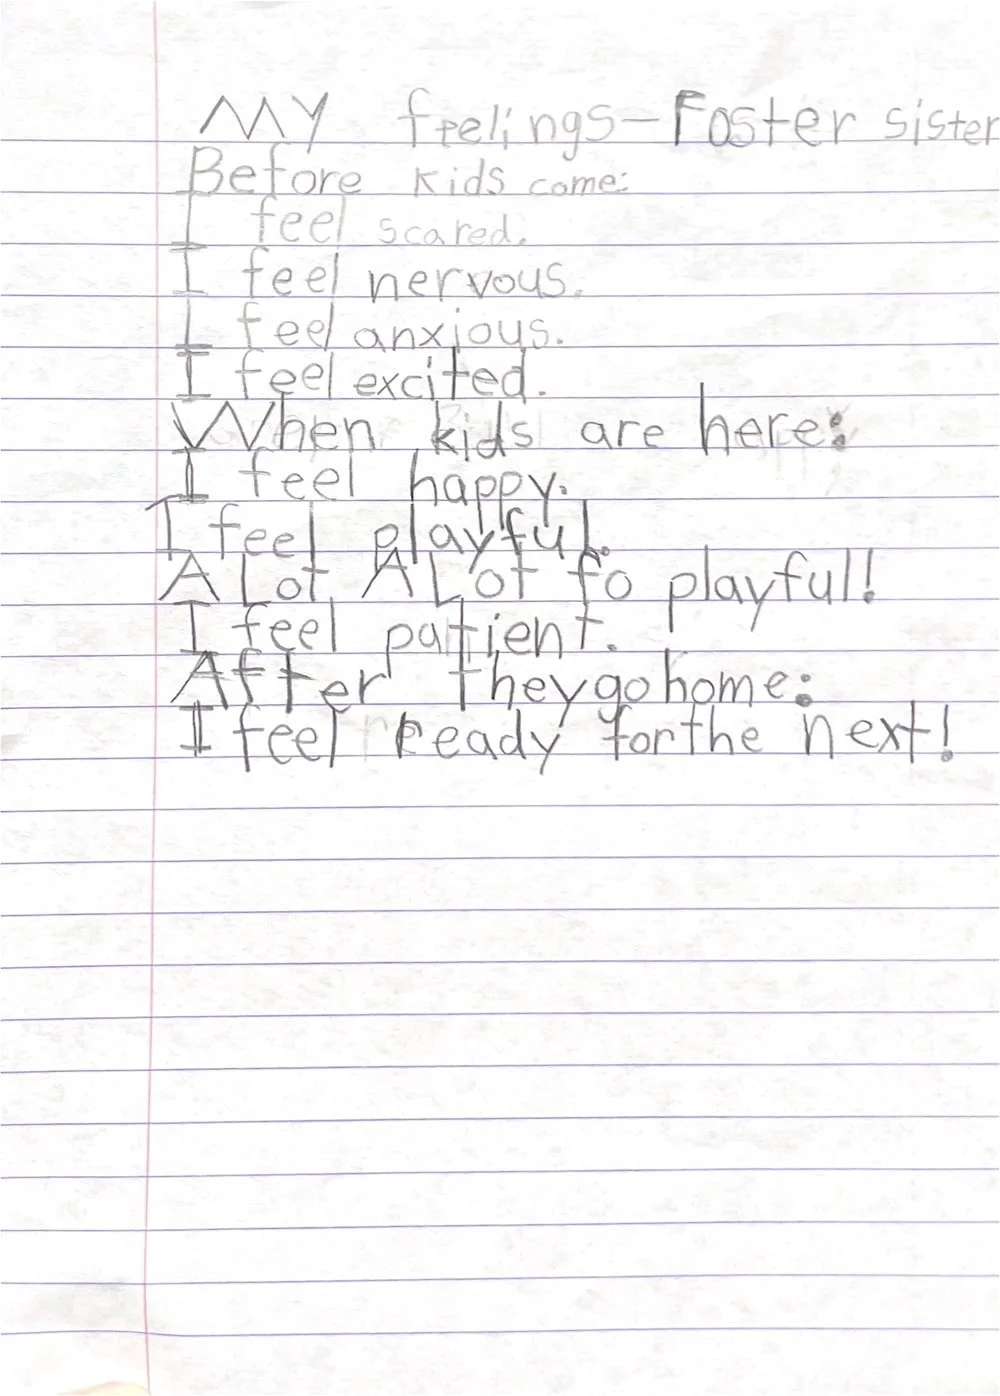 My feelings-Foster sister
Before kids come:
I feel scared.
I feel nervous.
I feel anxious.
I feel excited.
When kids are here:
I feel happy.
I feel playful.
A Lot A Lot fo playful!
I feel patient.
After they go home:
I feel Ready for the next!